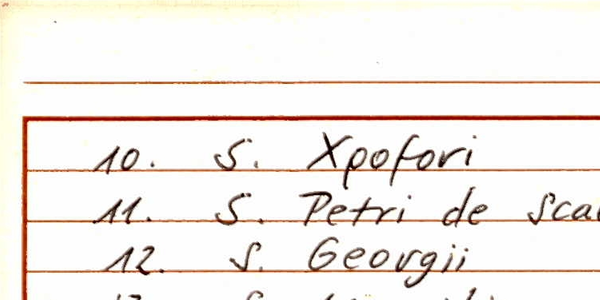 10. S. Xpofori
11. S. Petri de
12. S. Georgii